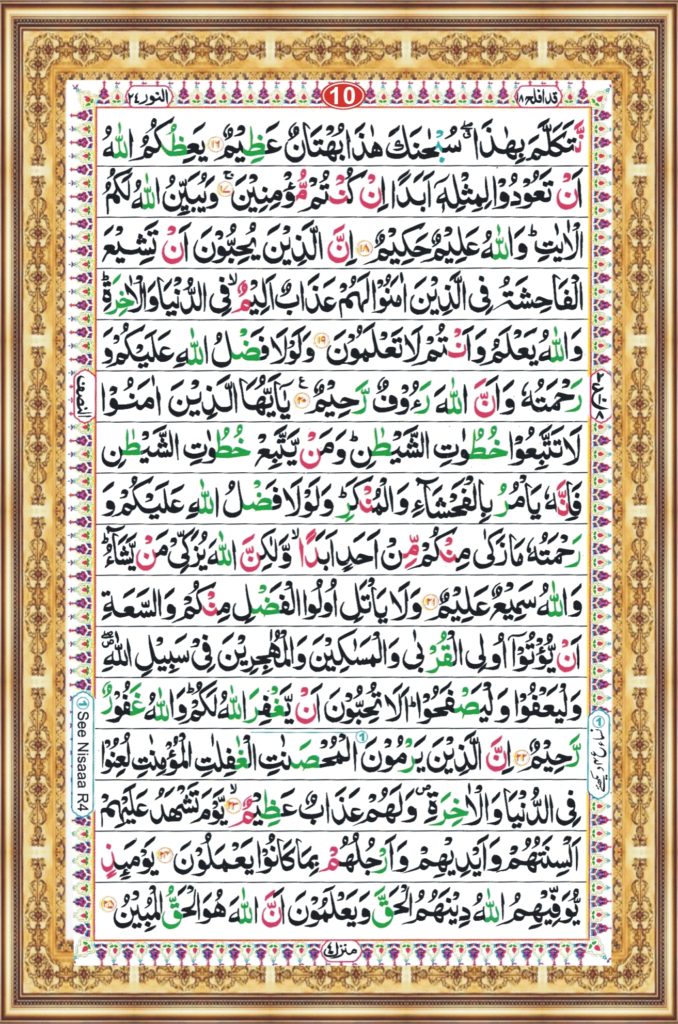 النور ٢٤
10
قد افلح ١٨
نَّتَكَلَّمَ بِهٰذَا ۖۗ سُبْحٰنَكَ هٰذَا بُهْتَانٌ عَظِيْمٌ ۝١٦ يَعِظُكُمُ اللّٰهُ
اَنْ تَعُوْدُوْا لِمِثْلِهٖٓ اَبَدًا اِنْ كُنْتُمْ مُّؤْمِنِيْنَ ۝١٧ۚ وَيُبَيِّنُ اللّٰهُ لَكُمُ
الْاٰيٰتِ ؕ وَاللّٰهُ عَلِيْمٌ حَكِيْمٌ ۝١٨ اِنَّ الَّذِيْنَ يُحِبُّوْنَ اَنْ تَشِيْعَ
الْفَاحِشَةُ فِى الَّذِيْنَ اٰمَنُوْا لَهُمْ عَذَابٌ اَلِيْمٌ ۙ فِى الدُّنْيَا وَالْاٰخِرَةِ ؕ
وَاللّٰهُ يَعْلَمُ وَاَنْتُمْ لَا تَعْلَمُوْنَ ۝١٩ وَلَوْلَا فَضْلُ اللّٰهِ عَلَيْكُمْ وَ
رَحْمَتُهٗ وَاَنَّ اللّٰهَ رَءُوْفٌ رَّحِيْمٌ ۝٢٠ۧ يٰٓاَيُّهَا الَّذِيْنَ اٰمَنُوْا
لَا تَتَّبِعُوْا خُطُوٰتِ الشَّيْطٰنِ ؕ وَمَنْ يَّتَّبِعْ خُطُوٰتِ الشَّيْطٰنِ
فَاِنَّهٗ يَاْمُرُ بِالْفَحْشَآءِ وَالْمُنْكَرِ ؕ وَلَوْلَا فَضْلُ اللّٰهِ عَلَيْكُمْ وَ
رَحْمَتُهٗ مَا زَكٰى مِنْكُمْ مِّنْ اَحَدٍ اَبَدًا ۙ وَّلٰكِنَّ اللّٰهَ يُزَكِّىْ مَنْ يَّشَآءُ ؕ
وَاللّٰهُ سَمِيْعٌ عَلِيْمٌ ۝٢١ وَلَا يَاْتَلِ اُولُوا الْفَضْلِ مِنْكُمْ وَالسَّعَةِ
اَنْ يُّؤْتُوْٓا اُولِى الْقُرْبٰى وَالْمَسٰكِيْنَ وَالْمُهٰجِرِيْنَ فِىْ سَبِيْلِ اللّٰهِ ۖ
وَلْيَعْفُوْا وَلْيَصْفَحُوْا ؕ اَلَا تُحِبُّوْنَ اَنْ يَّغْفِرَ اللّٰهُ لَكُمْ ؕ وَاللّٰهُ غَفُوْرٌ
رَّحِيْمٌ ۝٢٢ اِنَّ الَّذِيْنَ يَرْمُوْنَ الْمُحْصَنٰتِ الْغٰفِلٰتِ الْمُؤْمِنٰتِ لُعِنُوْا
فِى الدُّنْيَا وَالْاٰخِرَةِ ۪ وَلَهُمْ عَذَابٌ عَظِيْمٌ ۝٢٣ۙ يَّوْمَ تَشْهَدُ عَلَيْهِمْ
اَلْسِنَتُهُمْ وَاَيْدِيْهِمْ وَاَرْجُلُهُمْ بِمَا كَانُوْا يَعْمَلُوْنَ ۝٢٤ يَوْمَئِذٍ
يُّوَفِّيْهِمُ اللّٰهُ دِيْنَهُمُ الْحَقَّ وَيَعْلَمُوْنَ اَنَّ اللّٰهَ هُوَ الْحَقُّ الْمُبِيْنُ ۝٢٥
منزل ٤
① See Nisaaa R4